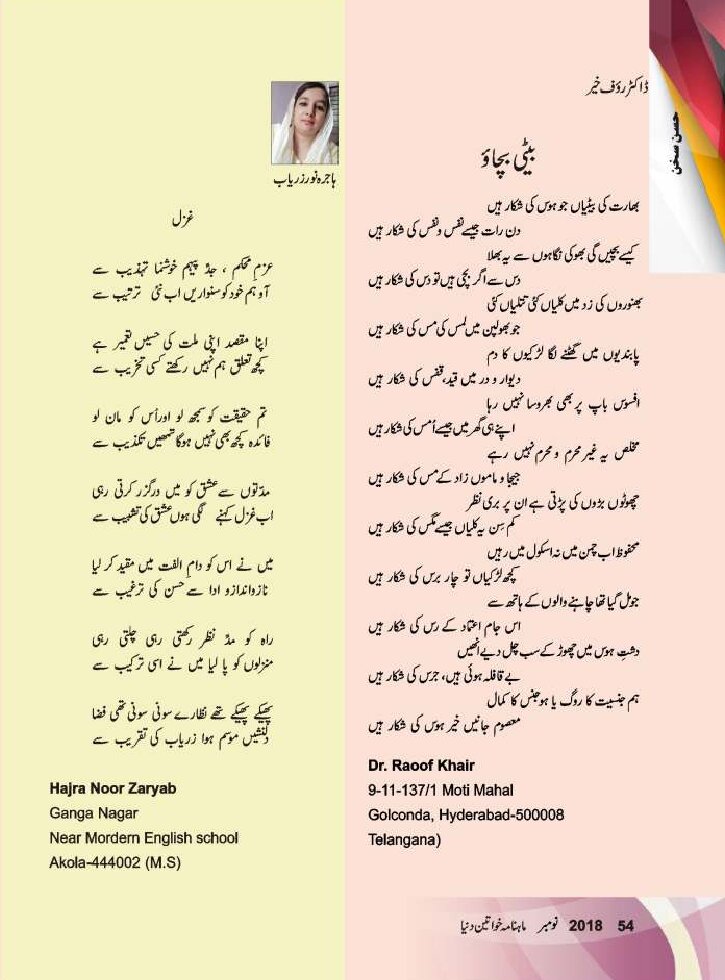 حسن سخن
ڈاکٹر رؤف خیر
بیٹی بچاؤ
بھارت کی بیٹیاں جو ہوس کی شکار ہیں
دن رات جیسے نفس و نفس کی شکار ہیں
کیسے بچیں گی بھوکی نگاہوں سے یہ بھلا
دس سے اگر بچی ہیں تو دس کی شکار ہیں
بھنوروں کی زد میں کلیاں کئی تتلیاں کئی
جو بھولپن میں لمس کی مس کی شکار ہیں
پابندیوں میں گھٹنے لگا لڑکیوں کا دم
دیوار و در میں قید، قفس کی شکار ہیں
افسوس باپ پر بھی بھروسا نہیں رہا
اپنے ہی گھر میں جیسے اُمس کی شکار ہیں
مخلص یہ غیر محرم و محرم نہیں رہے
جیجا و ماموں زاد کے مس کی شکار ہیں
چھوٹوں بڑوں کی پڑتی ہے ان پر بری نظر
کم سِن یہ کلیاں جیسے مگس کی شکار ہیں
محفوظ اب چمن میں نہ اسکول میں رہیں
کچھ لڑکیاں تو چار برس کی شکار ہیں
جو مل گیا تھا چاہنے والوں کے ہاتھ سے
اس جام اعتماد کے رس کی شکار ہیں
دشتِ ہوس میں چھوڑ کے سب چل دیے اُنھیں
بے قافلہ ہوئی ہیں، جرس کی شکار ہیں
ہم جنسیت کا روگ یا ہو جنس کا کمال
معصوم جانیں خیر ہوس کی شکار ہیں
Dr. Raoof Khair
9-11-137/1 Moti Mahal
Golconda, Hyderabad-500008
Telangana)
ہاجرہ نور زریاب
غزل
عزم محکم ، جہد پیہم خوشنما تہذیب سے
آؤ ہم خود کو سنواریں اب نئی ترتیب سے
اپنا مقصد اپنی ملت کی حسیں تعمیر ہے
کچھ تعلق ہم نہیں رکھتے کسی تخریب سے
تم حقیقت کو سمجھ لو اور اُس کو مان لو
فائدہ کچھ بھی نہیں ہوگا تمھیں تکذیب سے
مدّتوں سے عشق کو میں درگزر کرتی رہی
اب غزل کہنے لگی ہوں عشق کی تشبیب سے
میں نے اس کو دامِ الفت میں مقید کر لیا
ناز و انداز و ادا سے حسن کی ترغیب سے
راہ کو مدّ نظر رکھتی رہی چلتی رہی
منزلوں کو پا لیا میں نے اسی ترکیب سے
پھیکے پھیکے تھے نظارے سونی سونی تھی فضا
دلنشیں موسم ہوا زریاب کی تقریب سے
Hajra Noor Zaryab
Ganga Nagar
Near Mordern English school
Akola-444002 (M.S)
ماہنامہ خواتین دنیا نومبر 2018 54